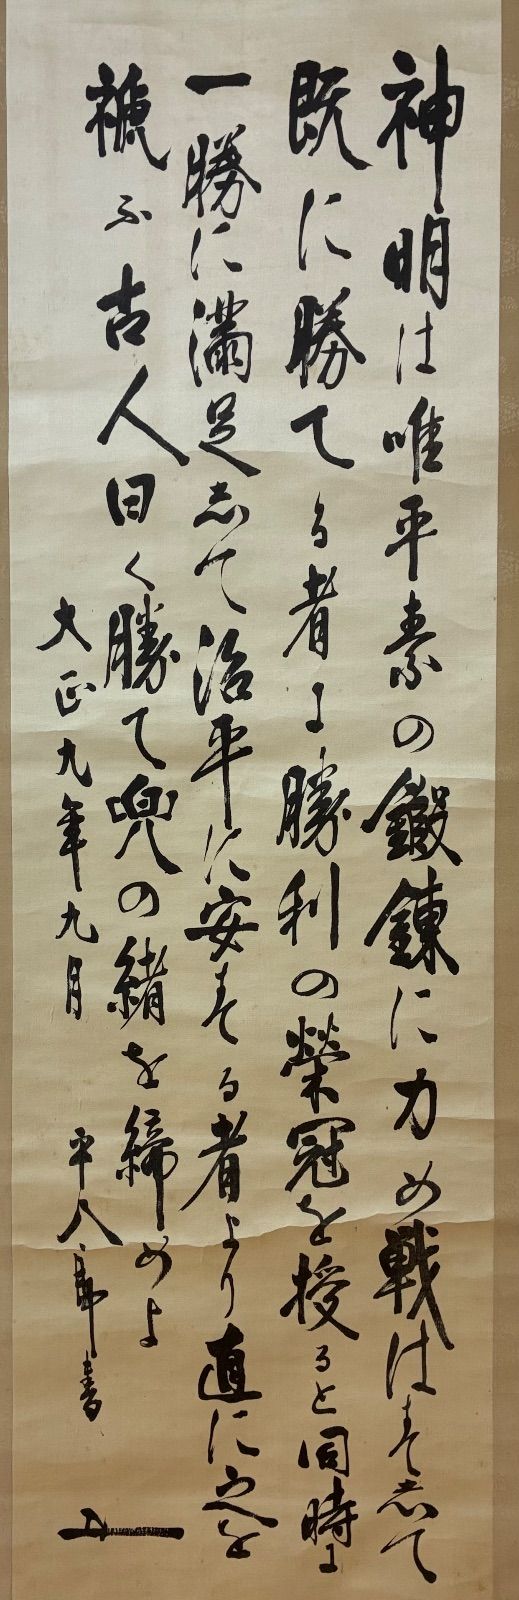 神明は唯平素の鍛錬に力め戦はずして
既に勝てる者に勝利の榮冠を授ると同時に
一勝に満足志て治平に安ずる者より直に之を
褫ふ古人曰く勝て兜の緒を締めよ
大正九年九月
平八郎書